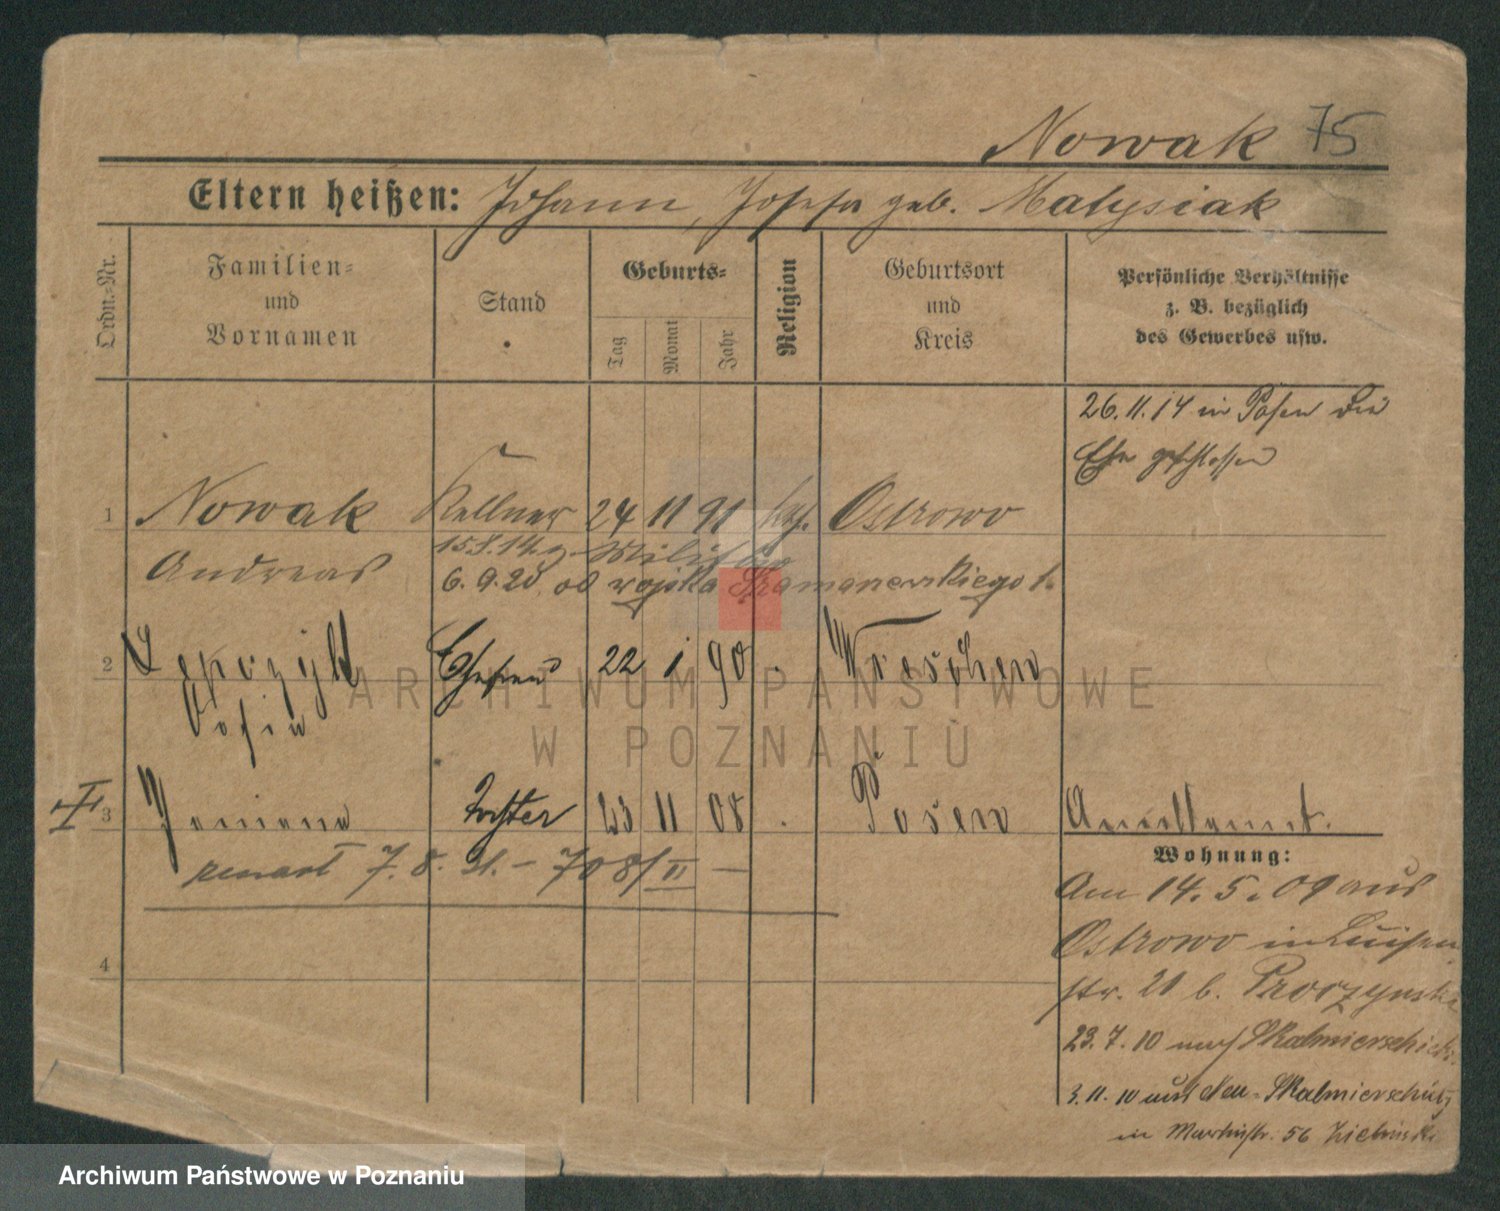 Nowak 75
Eltern heißen: Johann, Josefa geb. Matysiak
Ordn.-Nr.
Familien-
und
Vornamen
Stand
Geburts-
Tag
Monat
Jahr
Religion
Geburtsort
und
Kreis
Persönliche Verhältnisse
z. B. bezüglich
des Gewerbes usw.
26.11.14 in Posen die
Ehe geschlossen
1 Nowak Kellner 24 11 91 kath. Ostrowo
Andreas
15.8.14 z. Militär
6.9.20 od wojska
2 Ehefrau 22 1 90 Wreschen
Sofia
3 Tochter 23 11 08 Posen
7.8.21. - 7081/II -
4
Wohnung:
Am 14.5.09 aus
Ostrowo in Luisen
str. 21 b.
23.7.10 nach Skalmierschütz
3.11.10 aus Neu-Skalmierschütz
in Martinstr. 56
ARCHIWUM PAŃSTWOWE
W POZNANIU
Archiwum Państwowe w Poznaniu